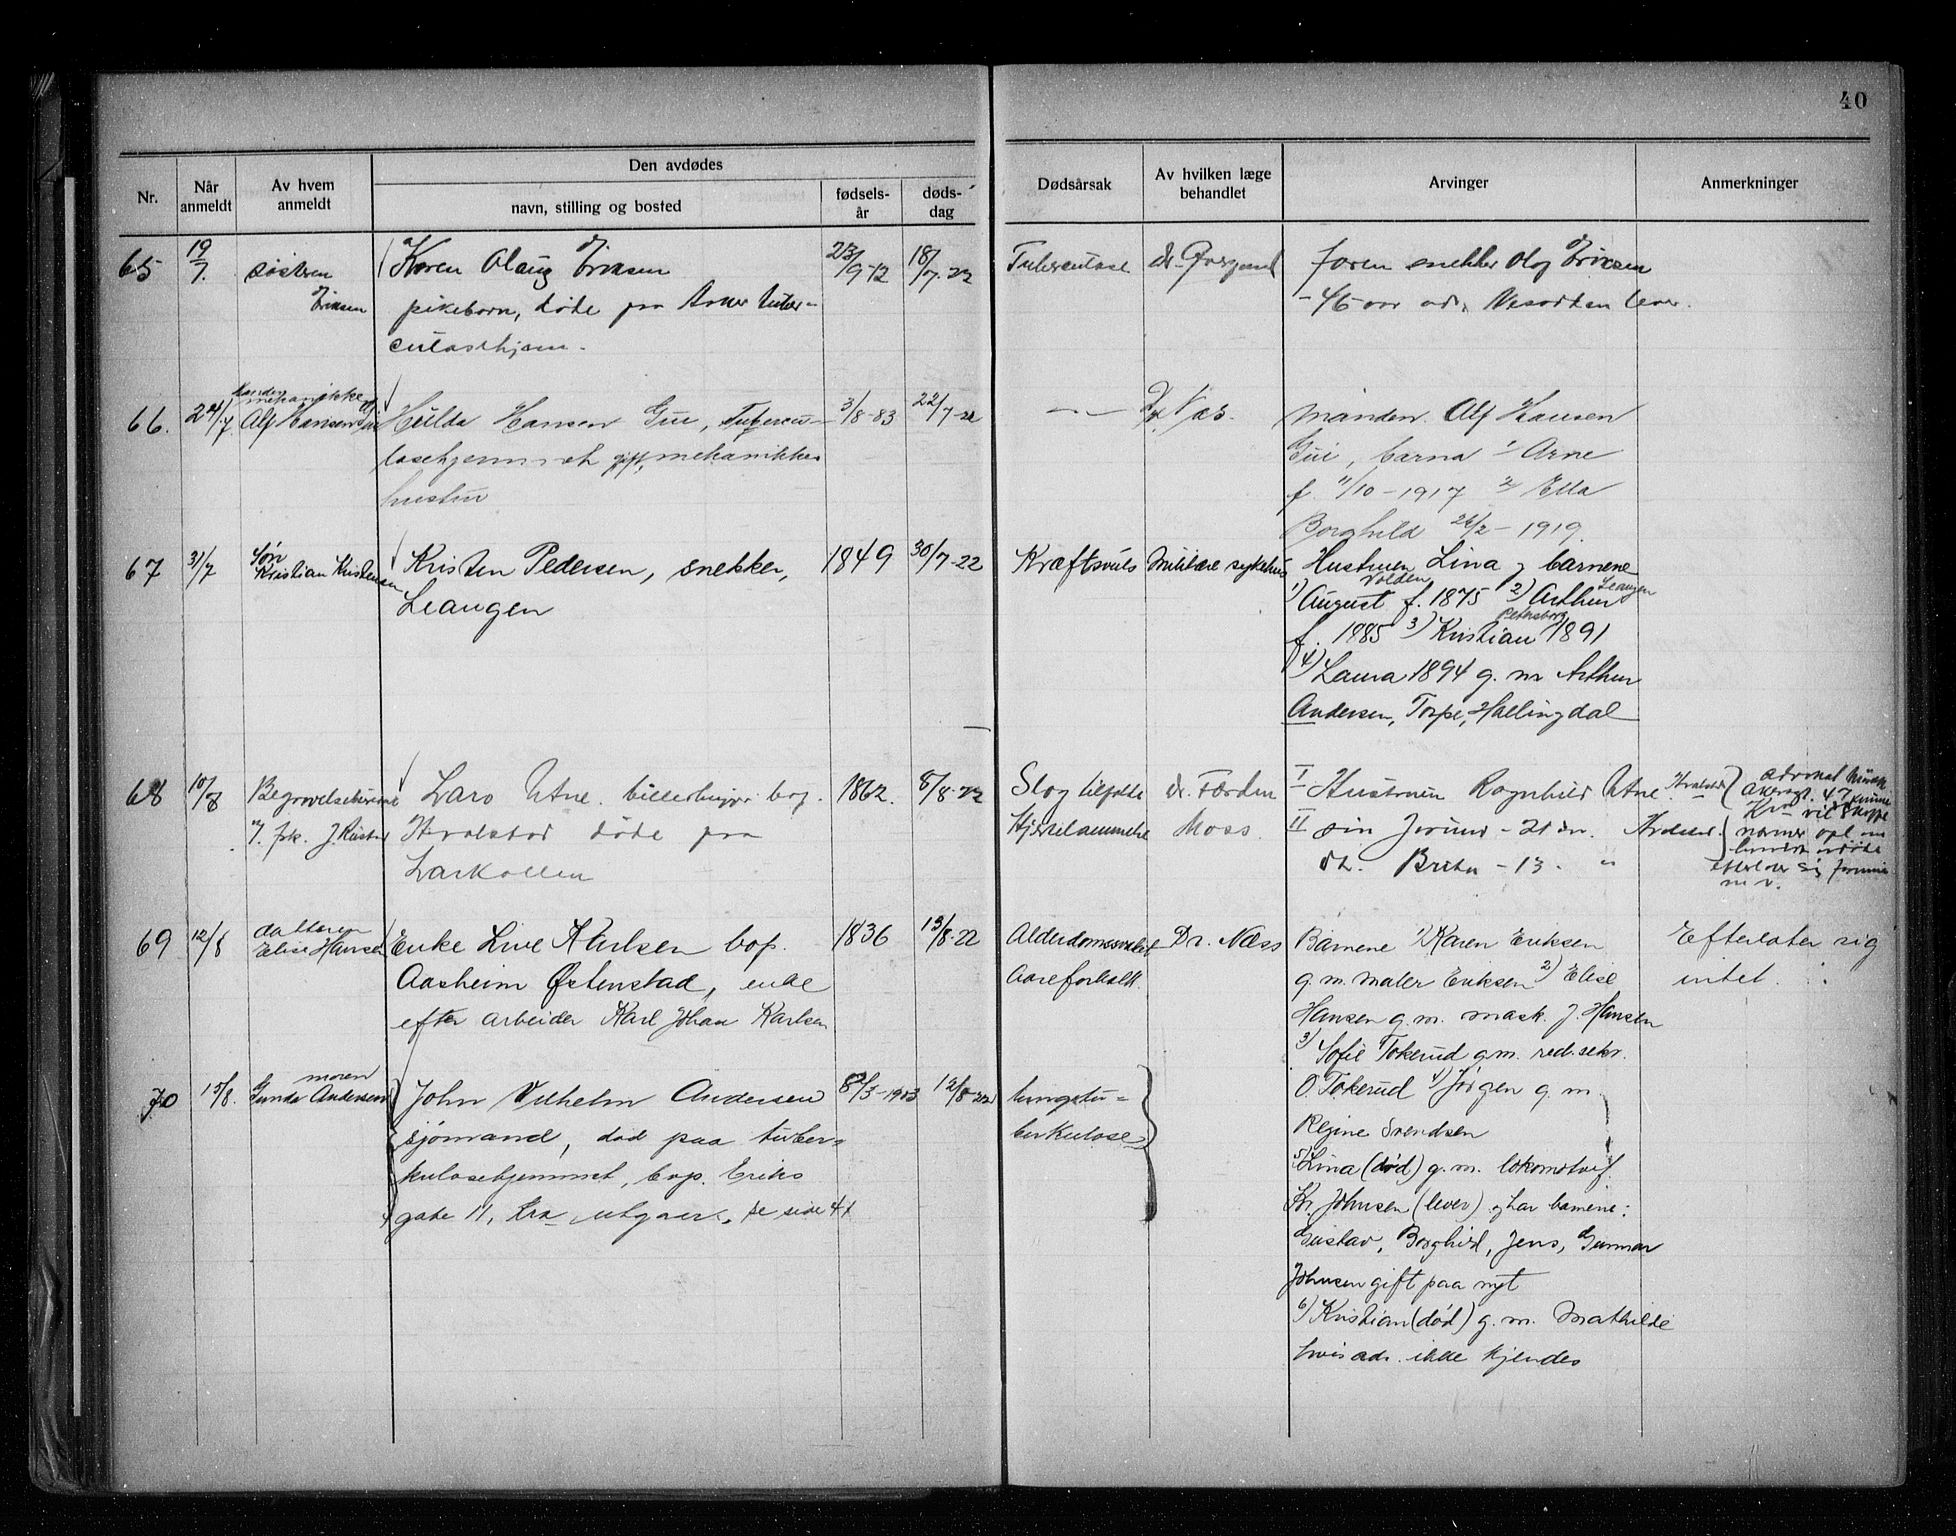 40
Nr.
Når anmeldt
Av hvem anmeldt
Den avdødes
navn, stilling og bosted
fødsels-år
døds-dag
Dødsårsak
Av hvilken læge behandlet
Arvinger
Anmerkninger
65
19/7.
søsteren
Eriksen
Karen Olaug Eriksen
pikebarn, døde paa Asker tuber-
culosehjem.
23/9-12
18/7-22
Tuberculose
dr.
faren snekker Olaf Eriksen
- 46 aar
66.
24/7.
Manden
mekanikker
Alf Hansen Gui
Hulda Hansen Gui, Tubercu-
losehjemmet gift, mekaniker
hustru
3/8-83
22/7-22
— " —
Dr Næs.
manden Alf Hansen
Gui, barna 1) Arne
f. 11/10-1917 2) Ella
Borghild 26/2-1919
67
31/7
Søn
Kristian Kristensen
Kristen Pedersen, snekker,
Leangen
1849
30/7-22
Kræftsvuls
Militære sykehus
Hustruen Lina og barnene
Volden
Leangen
1) August f. 1875 2) Arthur
Petersborg
f. 1885 3) Kristian 1891
4) Laura 1894 g. m Arthur
Andersen, Torpe, Hallingdal
68
10/8
Begravelses
v/ frk. J.
Lars Utne. billedhugger bop.
Hvalstad døde paa
Larkollen
1862.
8/8-22
Slag tilfølde
Hjertelammelse
dr. Førden
Moss.
I Hustruen Ragnhild Utne Hvalstad
II søn Jorund - 21 år.
dt. Brita - 13 - "
advokat
Akersgt. 47
Kra vil skifte
nærmer opl. om
efterlater sig formue
m v.
69
12/8
datteren
Elise Hansen
Enke Live Karlsen bop.
Aasheim Østenstad, enke
efter arbeider Karl Johan Karlsen
1836
13/8-22
Dr. Næss
Aareforkalk.
Barnene 1) Karen Eriksen
g. m. maler Eriksen 2) Elise
Hansen g. m. mask. J. Hansen
3) Sofie Tokerud g m. red. sekr.
O. Tokerud 4) Jørgen g. m.
Regine Svendsen
5) Lina (død) g. m. lokomotivf.
Kr. Johnsen (lever) og har barnene:
Gustav, Borghild, Jens, Gunnar
Johnsen gift paa nyt
6) Kristian (død) g. m. Mathilde
hvis adr. ikke kjendes
Efterlater sig
intet.
70
15/8.
moren
Gunda Andersen
John Vilhelm Andersen
sjømand, død paa tuber-
kulosehjemmet, bop. Eriks
gate 11, Kra utgaar. se side 41
8/3-1903
12/8-22
lungetu-
berkulose